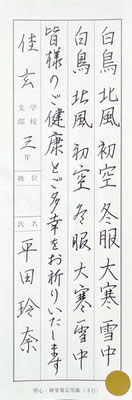 白鳥 北風 初空 冬服 大寒 雪中
白鳥 北風 初空 冬服 大寒 雪中
皆様のご健康とご多幸をお祈りいたします
佳玄 学校支部 三年 級 位 氏名 平田玲奈
硬筆規定用紙(3行)